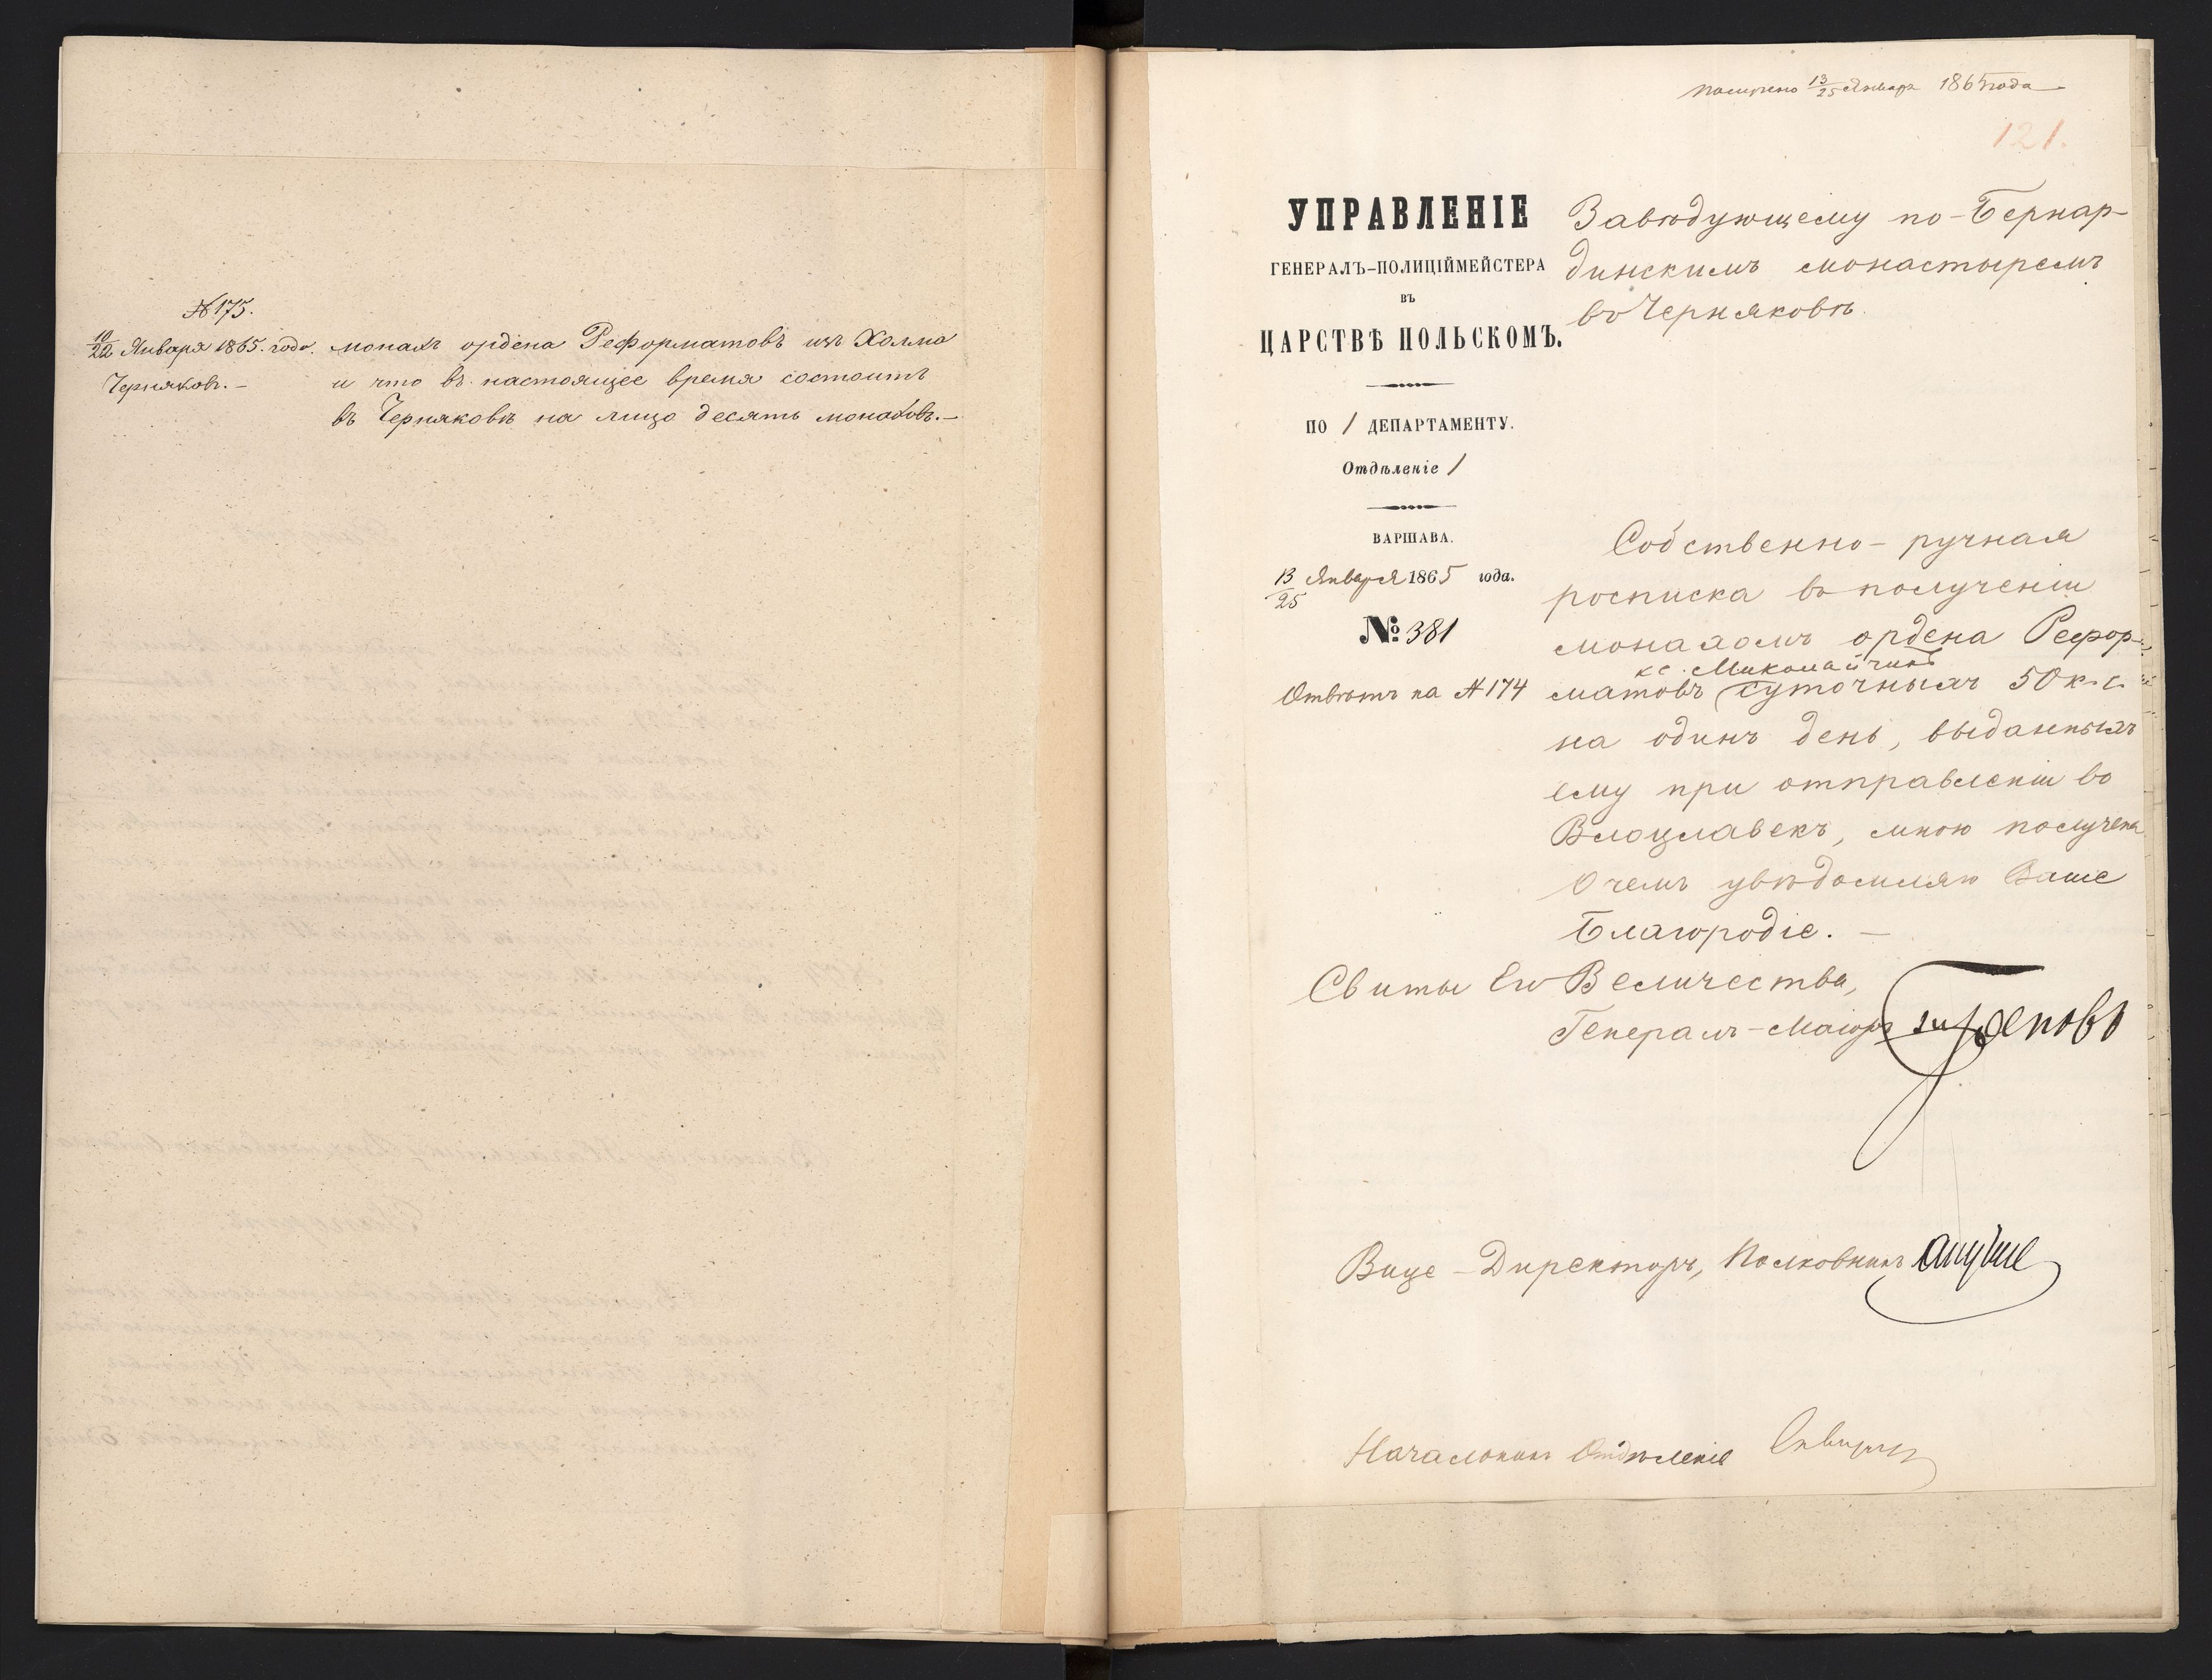 № 175.
10/22 Января 1865. года.
Черняков. –
монахъ ордена Реформатовъ изъ Холма
и что въ настоящее время состоитъ
въ Черняковѣ на лицо десять монаховъ. –
получено 13/25 Января 1865 года
121.
УПРАВЛЕНІЕ
ГЕНЕРАЛЪ-ПОЛИЦІЙМЕЙСТЕРА
ВЪ
ЦАРСТВѢ ПОЛЬСКОМЪ.
ПО 1 ДЕПАРТАМЕНТУ.
Отдѣленіе 1
ВАРШАВА.
13/25 Января 1865 года.
№ 381
Отвѣтъ на № 174
Завѣдующему по-Бернар-
динскимъ монастыремъ
въ Черняковѣ.
Собственно-ручная
росписка въ полученіи
монахомъ ордена Рефор-
кс. Миколайчикъ
матовъ суточныхъ 50 к. с.
на одинъ день, выданныхъ
ему при отправленіи въ
Влоцлавекъ, мною получена
О чемъ увѣдомляю Ваше
Благородіе. –
Свиты Его Величества,
Генералъ-Маіоръ Треповъ
Вице-Директоръ, Полковникъ
Начальникъ Отдѣленія